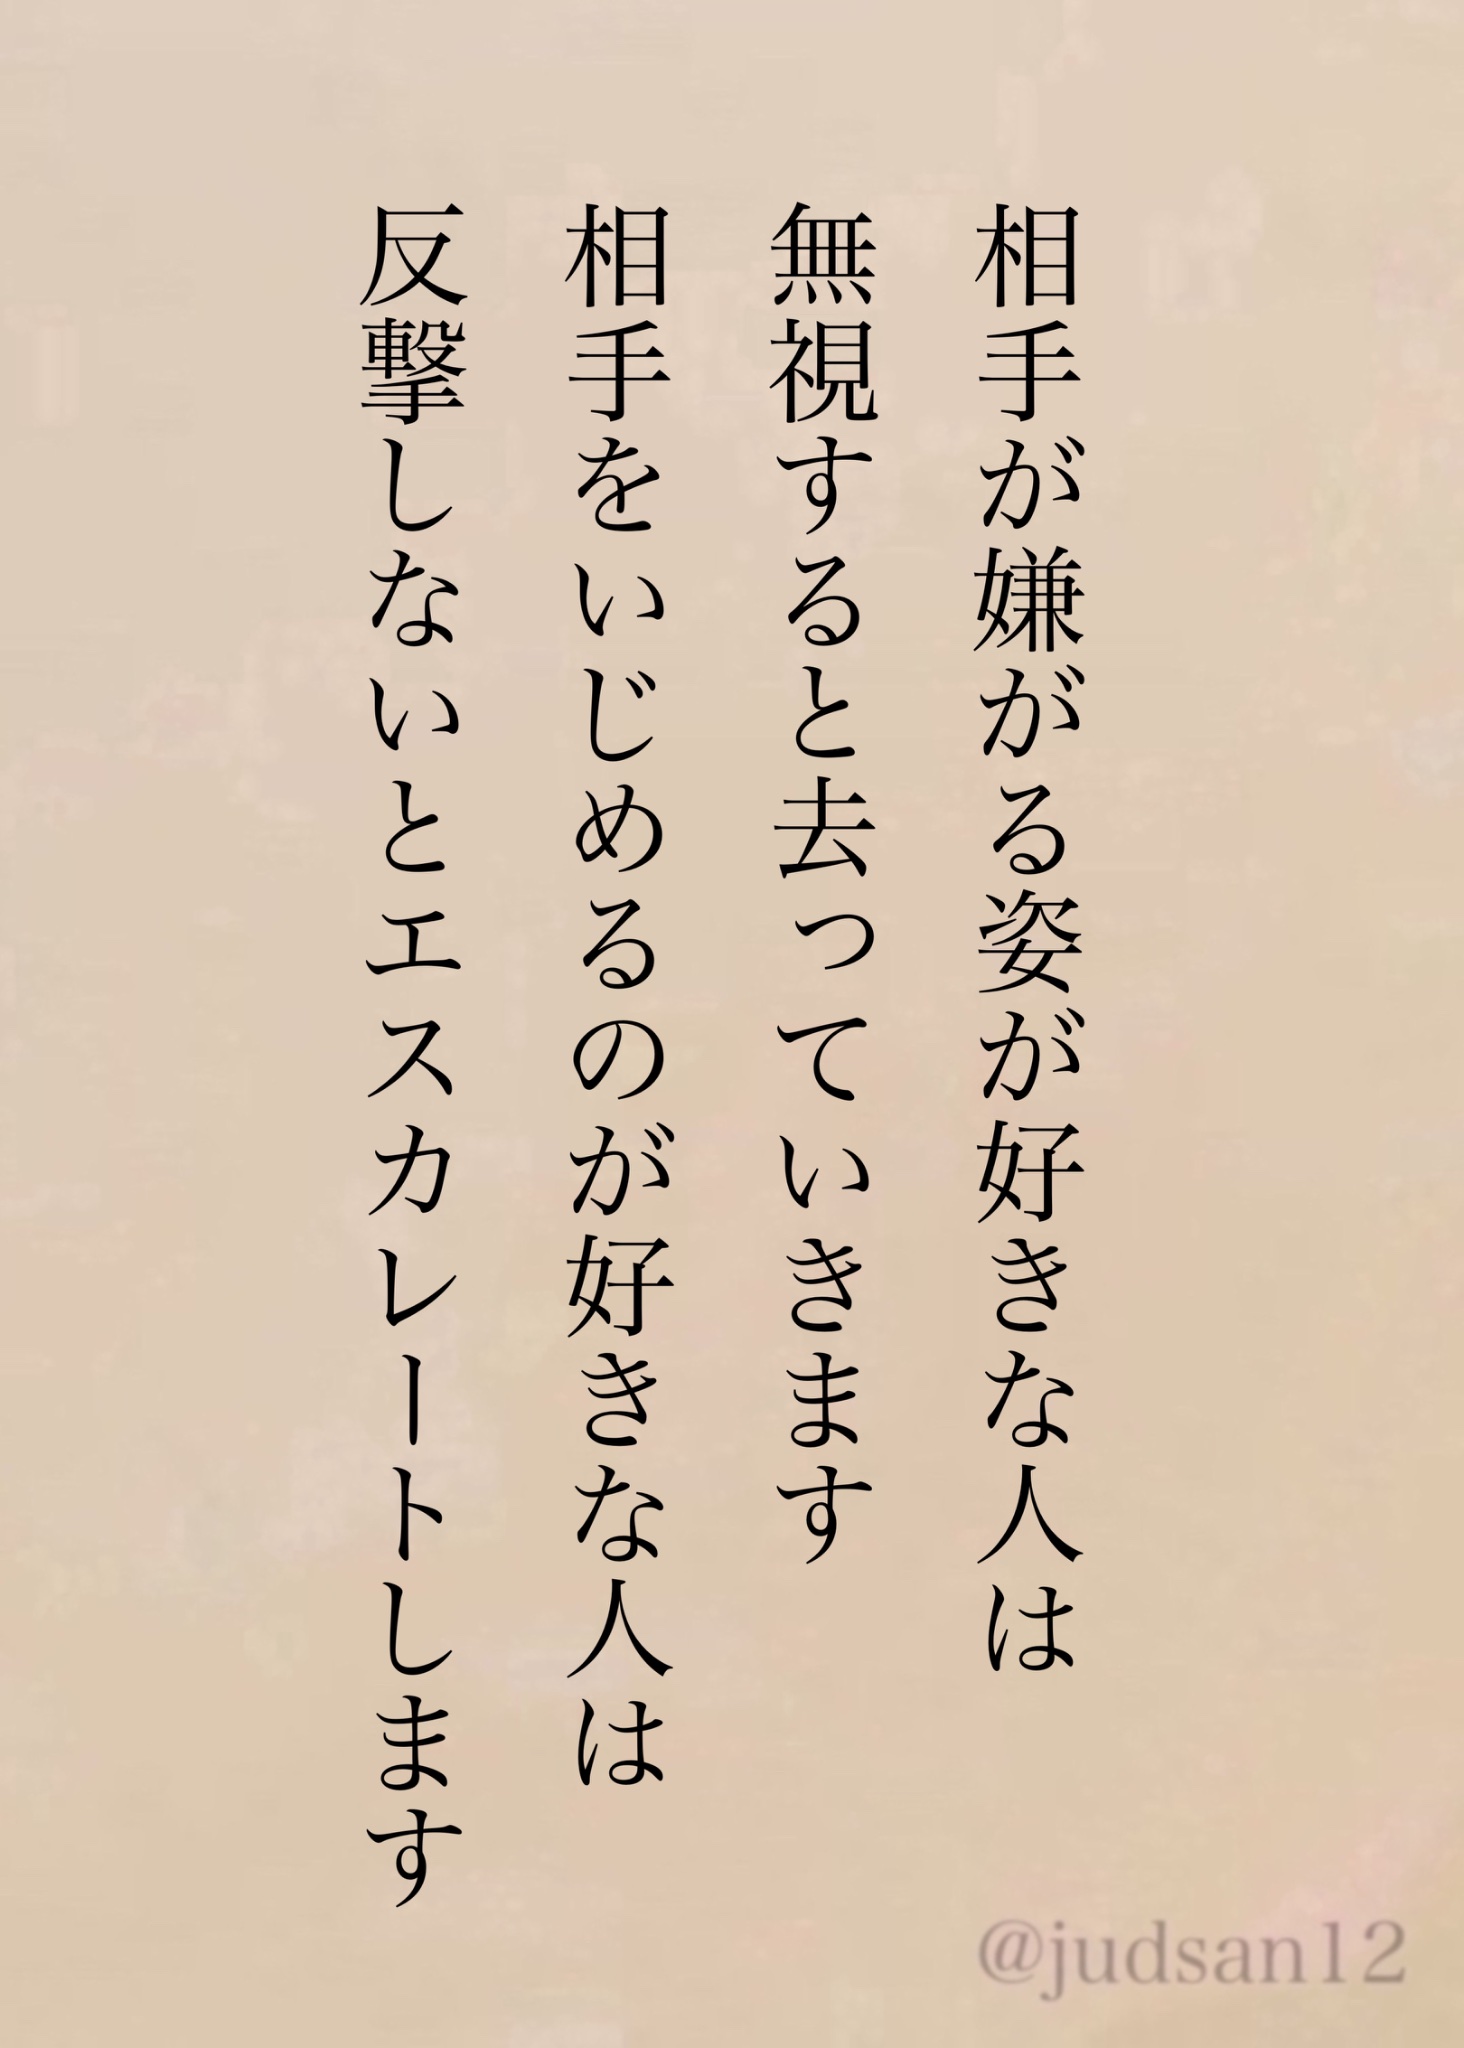 相手が嫌がる姿が好きな人は
無視すると去っていきます
相手をいじめるのが好きな人は
反撃しないとエスカレートします
@judsan12